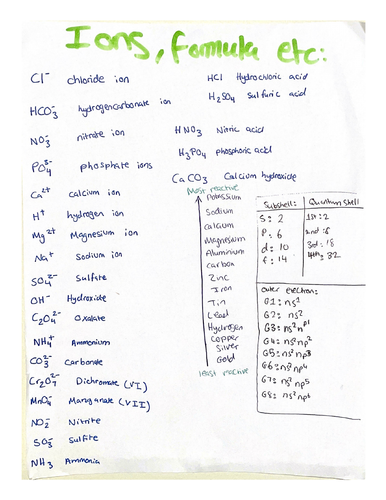 Ions, formula etc:
Cl⁻ chloride ion
HCO₃⁻ hydrogencarbonate ion
NO₃⁻ nitrate ion
PO₄³⁻ phosphate ions
Ca²⁺ calcium ion
H⁺ hydrogen ion
Mg²⁺ Magnesium ion
Na⁺ Sodium ion
SO₄²⁻ Sulfate
OH⁻ Hydroxide
C₂O₄²⁻ Oxalate
NH₄⁺ Ammonium
CO₃²⁻ Carbonate
Cr₂O₇²⁻ Dichromate (VI)
MnO₄⁻ Manganate (VII)
NO₂⁻ Nitrite
SO₃⁻ Sulfite
NH₃ Ammonia
HCl Hydrochloric acid
H₂SO₄ Sulfuric acid
HNO₃ Nitric acid
H₃PO₄ phosphoric acid
CaCO₃ Calcium hydroxide
Most reactive
Potassium
Sodium
calcium
Magnesium
Aluminium
Carbon
Zinc
Iron
Tin
Lead
Hydrogen
Copper
Silver
Gold
least reactive
Subshell:
S: 2
P: 6
d: 10
f: 14
Quantum shell
1st: 2
2nd: 8
3rd: 18
4th: 32
outer electron:
G1: ns²
G2: ns²
G3: ns²np¹
G4: ns²np²
G5: ns²np³
G6: ns²np⁴
G7: ns²np⁵
G8: ns²np⁶